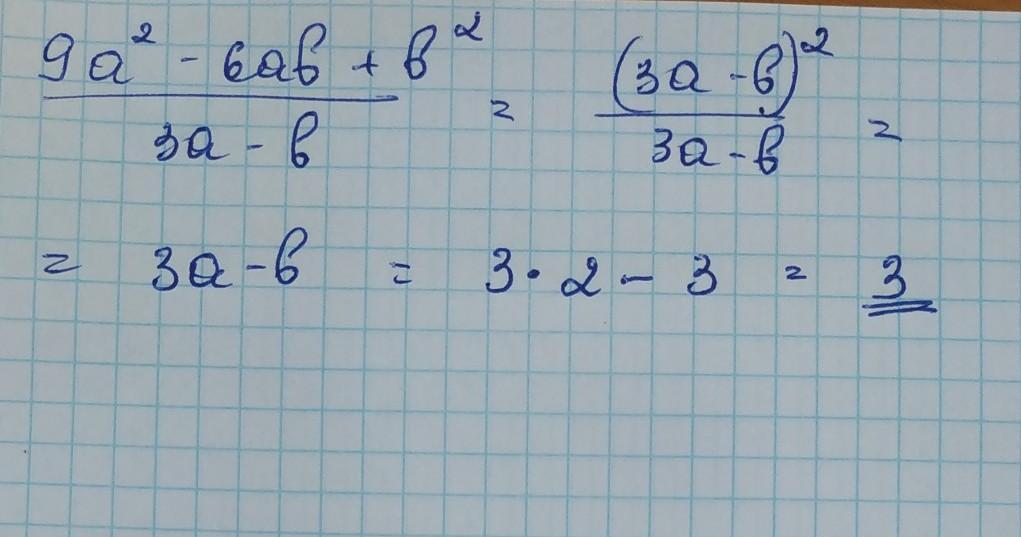 9a² - 6ab + b² / 3a - b = (3a - b)² / 3a - b =
= 3a - b = 3 · 2 - 3 = 3